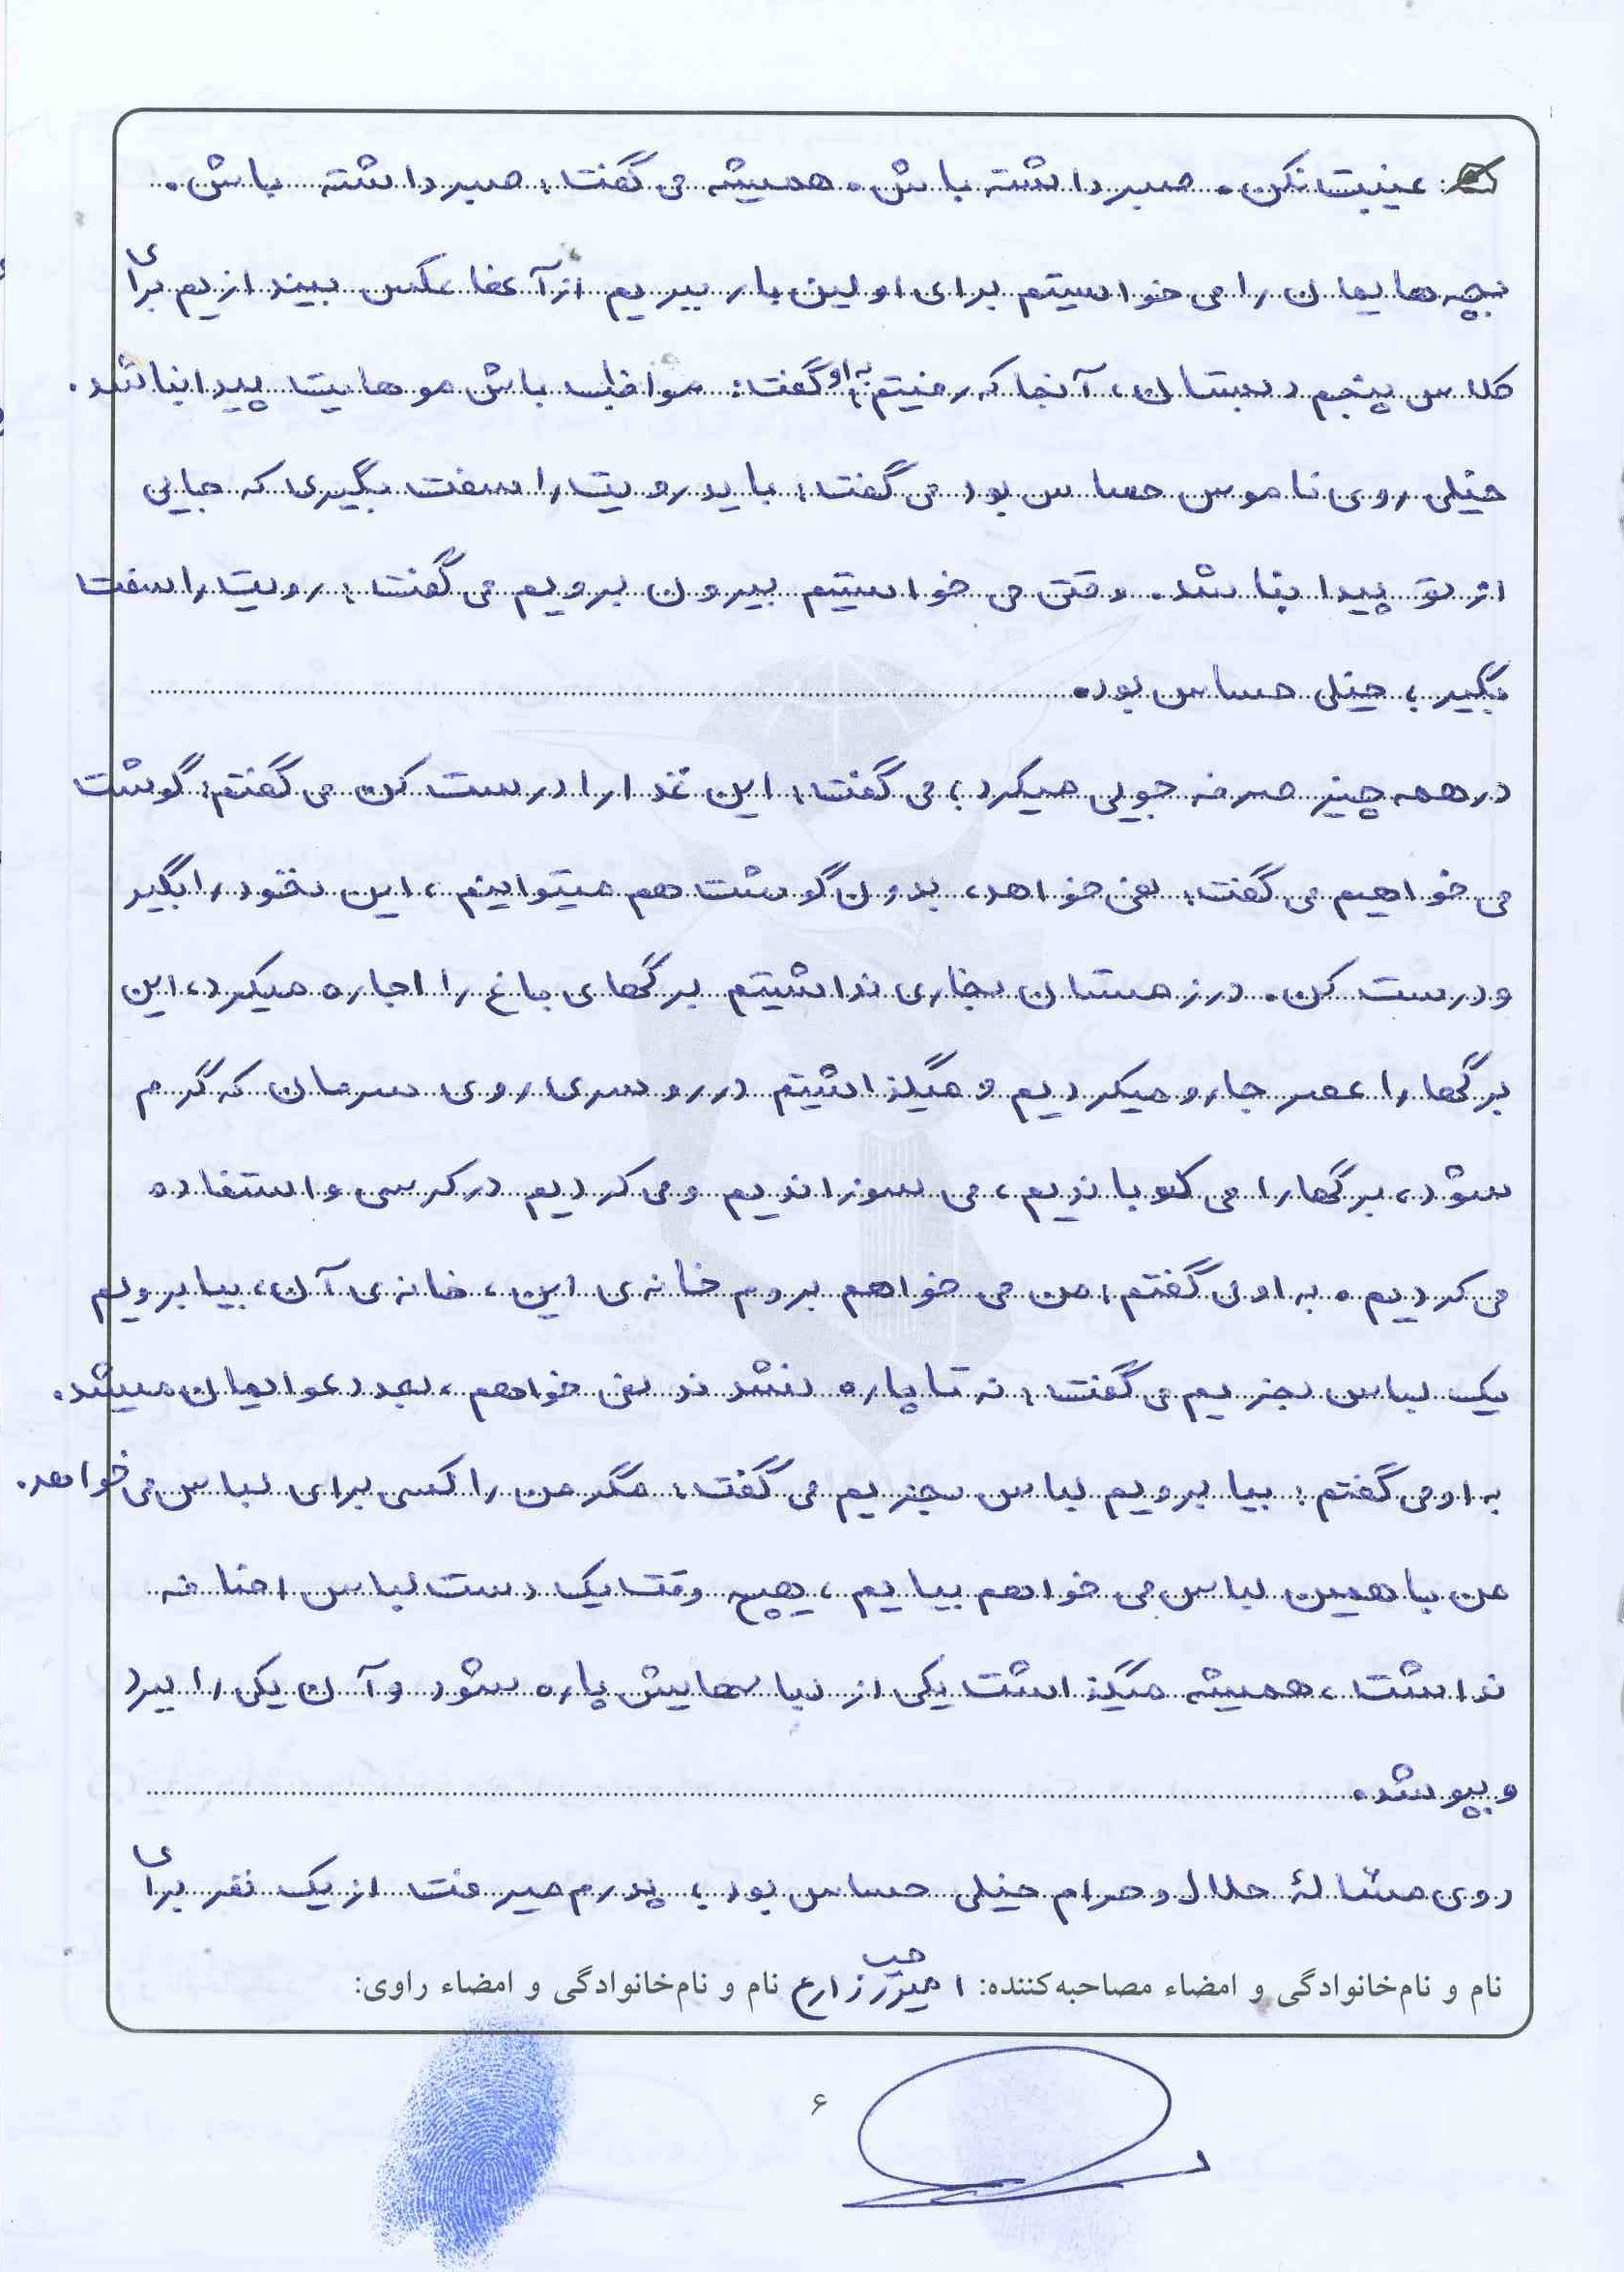 : غیبت نکن. صبر داشته باش. همیشه می گفت: صبر داشته باش.
بچه هایمان را می خواستیم برای اولین بار ببریم از آنها عکس بیندازیم برای
کلاس پنجم دبستان، آنجا که رفتیم به او گفت: مواظب باش موهایت پیدا نباشد.
خیلی روی ناموس حساس بود می گفت: باید رویت را سفت بگیری که جایی
از تو پیدا نباشد. وقتی می خواستیم بیرون برویم می گفت: رویت را سفت
بگیر؛ خیلی حساس بود.
در همه چیز صرفه جویی میکرد؛ می گفت: این غذا را درست کن می گفتم: گوشت
می خواهیم می گفت: نمی خواهد، بدون گوشت هم میتوانیم، این نخود را بگیر
و درست کن. در زمستان بخاری نداشتیم برگهای باغ را اجاره میکرد، این
برگها را عصر جارو میکردیم و میگذاشتیم در روسری روی سرمان که گرم
شود، برگها را می کوباندیم، می سوزاندیم و می کردیم در کرسی و استفاده
می کردیم. به او می گفتم: من می خواهم بروم خانه ی این، خانه ی آن، بیا برویم
یک لباس بخریم می گفت: نه تا پاره نشدند نمی خواهم، بعد دعوایمان میشد.
به او می گفتم: بیا برویم لباس بخریم می گفت: مگر من را کسی برای لباس می خواهد.
من با همین لباس می خواهم بیایم، هیچ وقت یک دست لباس اضافه
نداشت، همیشه میگذاشت یکی از لباسهایش پاره شود و آن یکی را ببرد
و بپوشد.
روی مسالهٔ حلال و حرام خیلی حساس بود؛ پدرم میرفت از یک نفر برای
نام و نام‌خانوادگی و امضاء مصاحبه‌کننده: زارع نام و نام‌خانوادگی و امضاء راوی:
۶